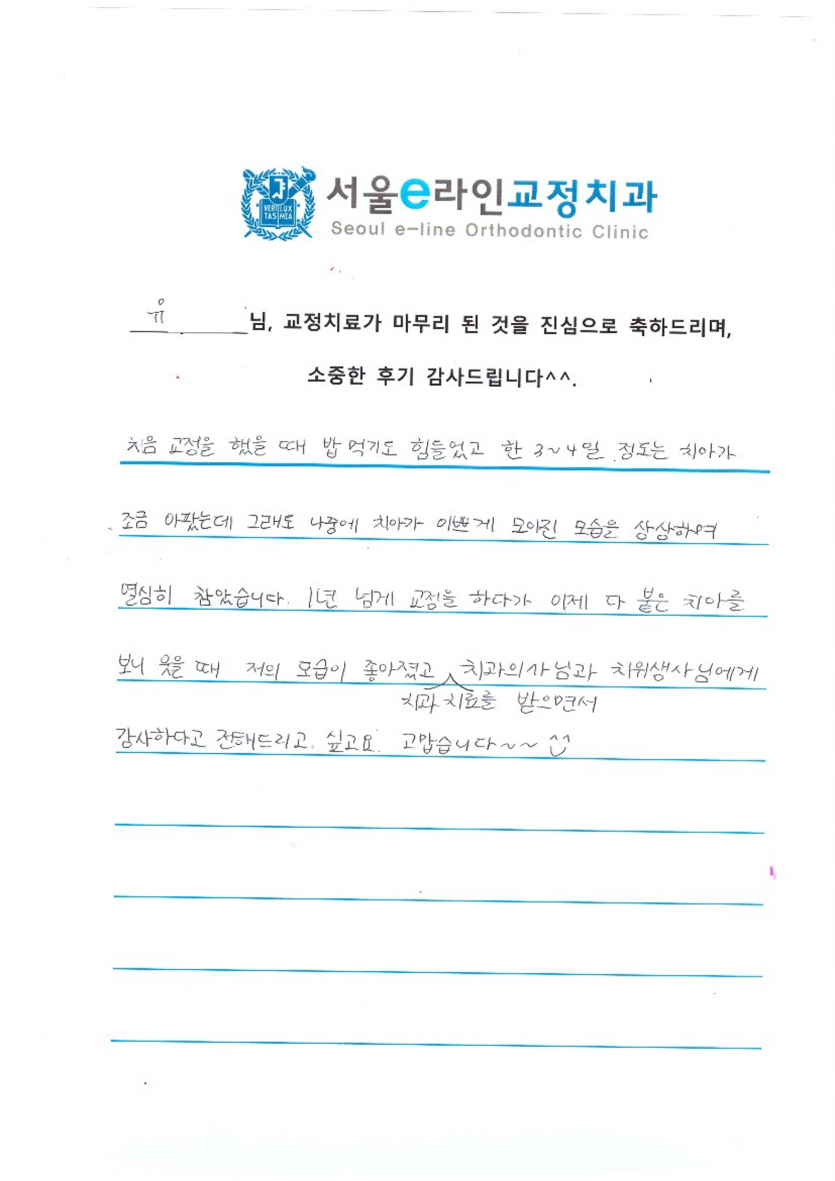 VERI LUX
TAS MEA
서울e라인교정치과
Seoul e-line Orthodontic Clinic
유 님, 교정치료가 마무리 된 것을 진심으로 축하드리며,
소중한 후기 감사드립니다^^.
처음 교정을 했을 때 밥 먹기도 힘들었고 한 3~4일 정도는 치아가
조금 아팠는데 그래도 나중에 치아가 이쁘게 모아진 모습을 상상하며
열심히 참았습니다. 1년 넘게 교정을 하다가 이제 다 붙은 치아를
보니 웃을 때 저의 모습이 좋아졌고 치과의사님과 치위생사님에게
치과 치료를 받으면서
감사하다고 전해드리고 싶고요. 고맙습니다~~ ^^